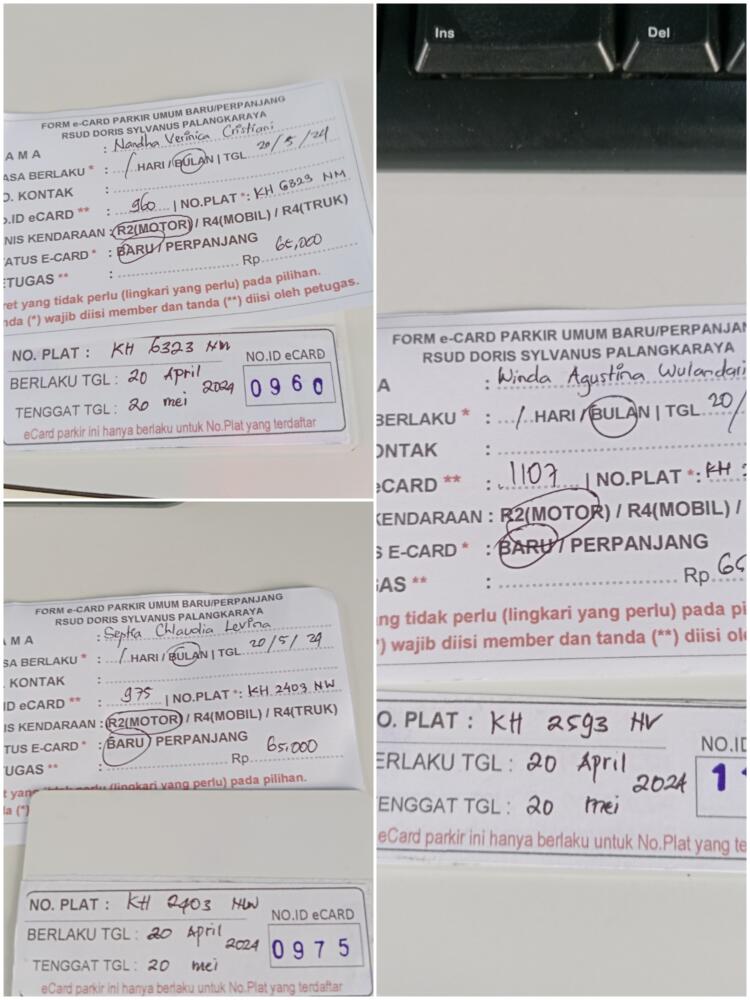 FORM e-CARD PARKIR UMUM BARU/PERPANJANG
RSUD DORIS SYLVANUS PALANGKARAYA
AMA : Nandha Verinica Cristiani
ASA BERLAKU * : / HARI / BULAN | TGL 20/5/24
O. KONTAK :
O.ID eCARD ** : 960 | NO.PLAT *: KH 6323 NM
NIS KENDARAAN : R2(MOTOR) / R4(MOBIL) / R4(TRUK)
ATUS E-CARD * : BARU / PERPANJANG
ETUGAS ** : Rp 65,000
ret yang tidak perlu (lingkari yang perlu) pada pilihan.
nda (*) wajib diisi member dan tanda (**) diisi oleh petugas.
NO. PLAT : KH 6323 NW
BERLAKU TGL : 20 April 2024
TENGGAT TGL : 20 mei
NO.ID eCARD
0960
eCard parkir ini hanya berlaku untuk No.Plat yang terdaftar
Ins
Del
FORM e-CARD PARKIR UMUM BARU/PERPANJAN
RSUD DORIS SYLVANUS PALANGKARAYA
A : Winda Agustina Wulandari
BERLAKU * : / HARI / BULAN | TGL 20/
ONTAK :
eCARD ** : 1107 | NO.PLAT *: KH
KENDARAAN : R2(MOTOR) / R4(MOBIL) /
S E-CARD * : BARU / PERPANJANG
AS ** : Rp 65
ng tidak perlu (lingkari yang perlu) pada pi
) wajib diisi member dan tanda (**) diisi ol
O. PLAT : KH 2593 HV
ERLAKU TGL : 20 April 2024
ENGGAT TGL : 20 mei
NO.ID
11
eCard parkir ini hanya berlaku untuk No.Plat yang te
FORM e-CARD PARKIR UMUM BARU/PERPANJANG
RSUD DORIS SYLVANUS PALANGKARAYA
MA : Septa Chlaudia Levina
SA BERLAKU * : / HARI / BULAN | TGL 20/5/24
. KONTAK :
ID eCARD ** : 975 | NO.PLAT *: KH 2403 NW
IS KENDARAAN : R2(MOTOR) / R4(MOBIL) / R4(TRUK)
TUS E-CARD * : BARU / PERPANJANG
TUGAS ** : Rp 65.000
t yang tidak perlu (lingkari yang perlu) pada pilihan.
NO. PLAT : KH 2403 NW
BERLAKU TGL : 20 April 2024
TENGGAT TGL : 20 mei
NO.ID eCARD
0975
eCard parkir ini hanya berlaku untuk No.Plat yang terdaftar